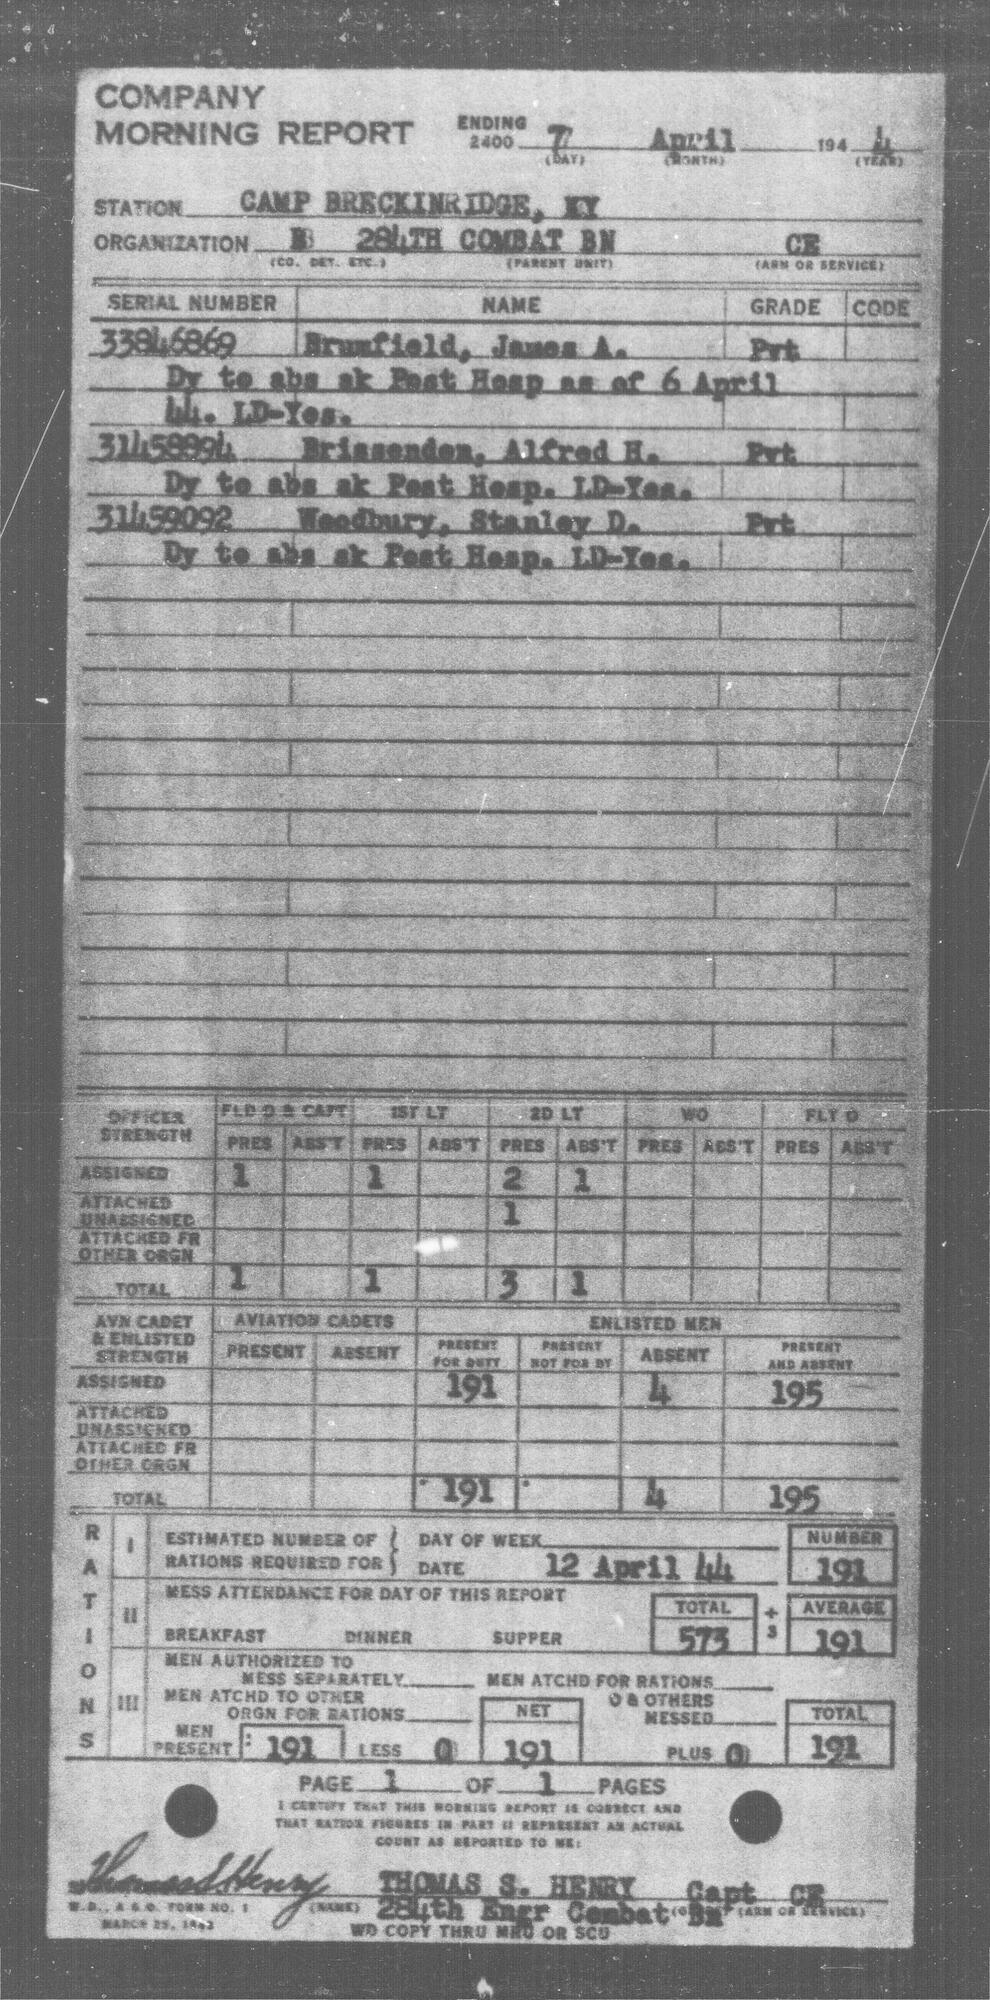 COMPANY
MORNING REPORT ENDING 2400 7 April 194 4
(DAY) (MONTH) (YEAR)
STATION CAMP BRECKINRIDGE, KY
ORGANIZATION B 284TH COMBAT BN CE
(CO. DET. ETC.) (PARENT UNIT) (ARM OR SERVICE)
SERIAL NUMBER NAME GRADE CODE
33846869 Brumfield, James A. Pvt
Dy to abs sk Post Hosp as of 6 April
44. LD-Yes.
31458894 Brissenden, Alfred H. Pvt
Dy to abs sk Post Hosp. LD-Yes.
31459092 Woodbury, Stanley D. Pvt
Dy to abs sk Post Hosp. LD-Yes.
OFFICER STRENGTH FLD O & CAPT 1ST LT 2D LT WO FLT O
PRES ABS'T PRES ABS'T PRES ABS'T PRES ABS'T PRES ABS'T
ASSIGNED 1 1 2 1
ATTACHED UNASSIGNED 1
ATTACHED FR OTHER ORGN
TOTAL 1 1 3 1
AVN CADET & ENLISTED STRENGTH AVIATION CADETS ENLISTED MEN
PRESENT ABSENT PRESENT FOR DUTY PRESENT NOT FOR DY ABSENT PRESENT AND ABSENT
ASSIGNED 191 4 195
ATTACHED UNASSIGNED
ATTACHED FR OTHER ORGN
TOTAL 191 4 195
RATIONS
I ESTIMATED NUMBER OF DAY OF WEEK NUMBER
RATIONS REQUIRED FOR DATE 12 April 44 191
II MESS ATTENDANCE FOR DAY OF THIS REPORT
TOTAL ÷ 3 AVERAGE
BREAKFAST DINNER SUPPER 573 191
III MEN AUTHORIZED TO
MESS SEPARATELY MEN ATCHD FOR RATIONS
MEN ATCHD TO OTHER O & OTHERS
ORGN FOR RATIONS NET MESSED TOTAL
MEN PRESENT 191 LESS 0 191 PLUS 0 191
PAGE 1 OF 1 PAGES
I CERTIFY THAT THIS MORNING REPORT IS CORRECT AND
THAT RATION FIGURES IN PART II REPRESENT AN ACTUAL
COUNT AS REPORTED TO ME:
Thomas S Henry THOMAS S. HENRY Capt CE
284th Engr Combat Bn
W.D., A.G.O. FORM NO. 1 (NAME) (ARM OR SERVICE)
MARCH 25, 1943
WD COPY THRU MRU OR SCU